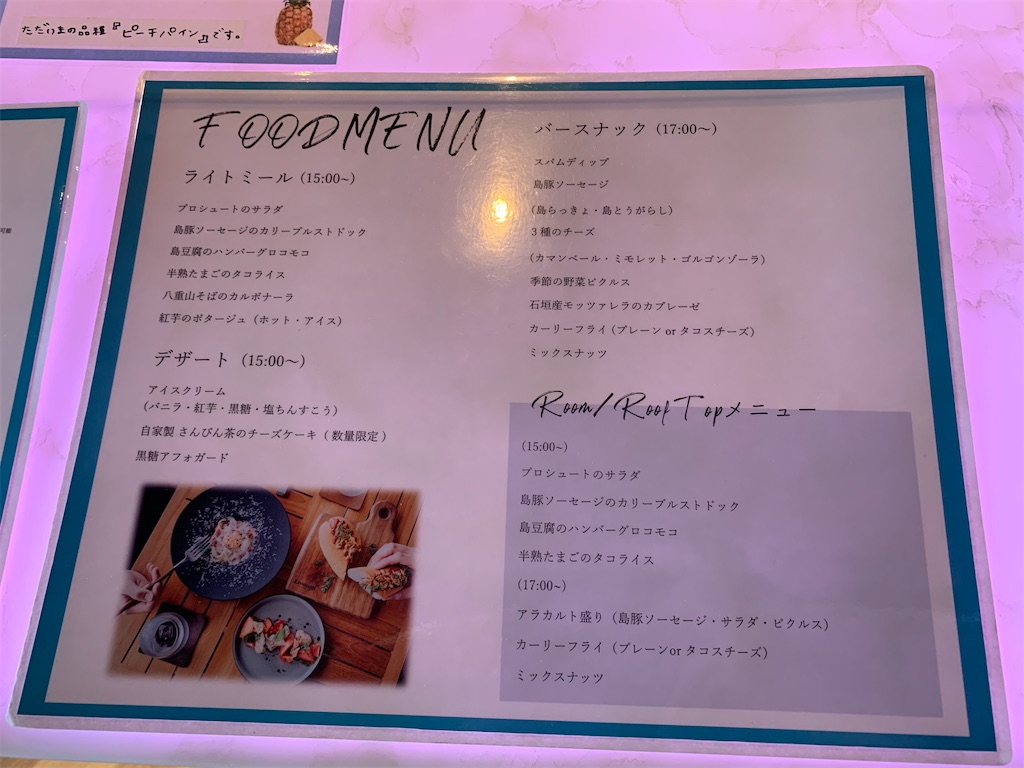 ただいまの品種『ピーチパイン』です。
可能
FOODMENU
ライトミール(15:00~)
プロシュートのサラダ
島豚ソーセージのカリーブルストドック
島豆腐のハンバーグロコモコ
半熟たまごのタコライス
八重山そばのカルボナーラ
紅芋のポタージュ(ホット・アイス)
デザート(15:00〜)
アイスクリーム
(バニラ・紅芋・黒糖・塩ちんすこう)
自家製 さんぴん茶のチーズケーキ(数量限定)
黒糖アフォガード
バースナック(17:00〜)
スパムディップ
島豚ソーセージ
(島らっきょ・島とうがらし)
3種のチーズ
(カマンベール・ミモレット・ゴルゴンゾーラ)
季節の野菜ピクルス
石垣産モッツァレラのカプレーゼ
カーリーフライ(プレーン or タコスチーズ)
ミックスナッツ
Room/RoofTopメニュー
(15:00~)
プロシュートのサラダ
島豚ソーセージのカリーブルストドック
島豆腐のハンバーグロコモコ
半熟たまごのタコライス
(17:00~)
アラカルト盛り(島豚ソーセージ・サラダ・ピクルス)
カーリーフライ(プレーンor タコスチーズ)
ミックスナッツ